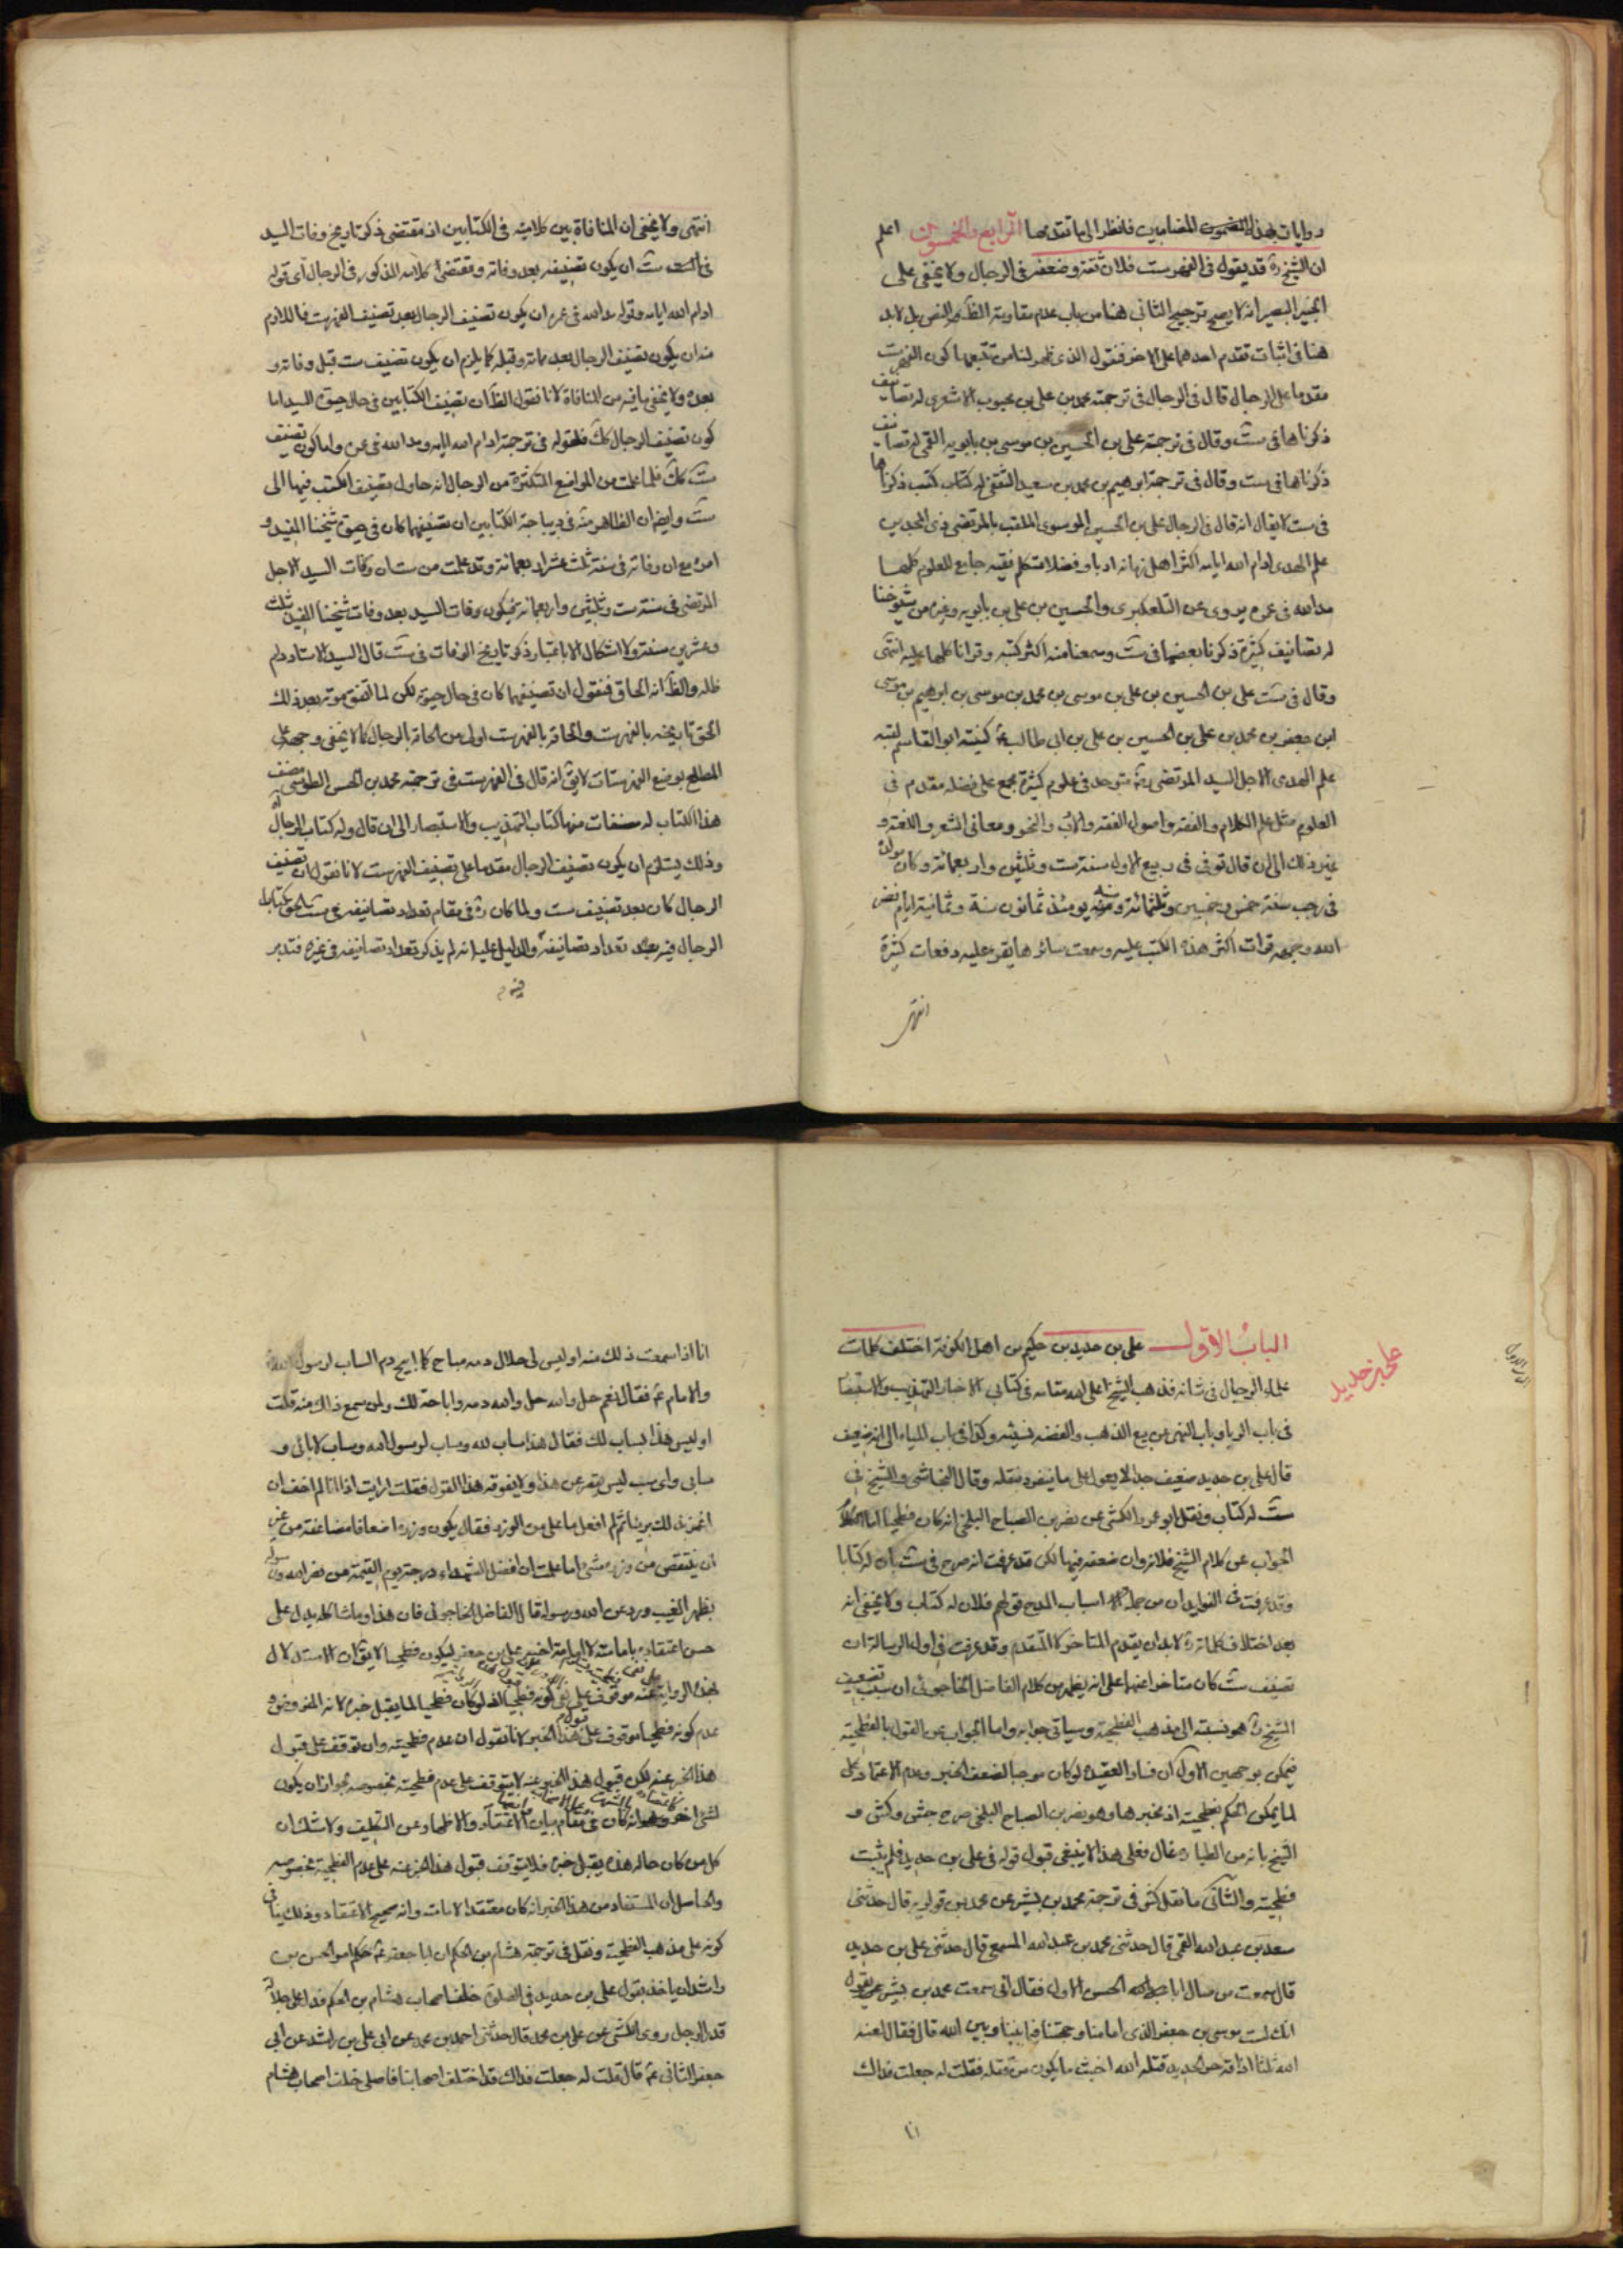 روايات بهذه المضامين فانظر الى ما تقدمها الرابع والخمسون اعلم
ان الشيخ ره قد يقول في الفهرست فلان ثقة وضعفه في الرجال ولا يخفى على
الخبير البصير انه لا يصح ترجيح الثاني هنا من باب عدم مقاومة الظاهر النص بل لابد
هنا في اثبات تقدم احدهما على الاخر فنقول الذي ظهر لنا من تتبعها كون الفهرست
مقدما على الرجال قال في الرجال في ترجمة محمد بن علي بن محبوب الاشعري له تصانيف
ذكرناها في ست وقال في ترجمة علي بن الحسين بن موسى بن بابويه القمي له تصانيف
ذكرناها في ست وقال في ترجمة ابرهيم بن محمد بن سعيد الثقفي له كتاب كتب ذكرناها
في ست لا يقال انه قال في الرجال علي بن الحسين الموسوي الملقب بالمرتضى ذي المجدين
علم الهدى ادام الله ايامه اكثر اهل زمانه ادبا وفضلا متكلم فقيه جامع للعلوم كلها
مد الله في عمره يروي عن التلعكبري والحسين بن علي بن بابويه وغيرهم من شيوخنا
له تصانيف كثيرة ذكرنا بعضها في ست وسمعنا منه اكثر كتبه وقرانا كلها عليه انتهى
وقال في ست علي بن الحسين بن علي بن موسى بن محمد بن موسى بن ابرهيم بن موسى
ابن جعفر بن محمد بن علي بن الحسين بن علي بن ابي طالب ع كنيته ابو القاسم لقبه
علم الهدى الاجل السيد المرتضى رض متوحد في علوم كثيرة مجمع على فضله مقدم في
العلوم مثل علم الكلام والفقه واصول الفقه والادب والنحو ومعاني الشعر واللغة و
غير ذلك الى ان قال توفي في ربيع الاول سنة ست وثلثين واربعمائة وكان مولده
في رجب سنة خمس وخمسين وثلثمائة وسنه يومئذ ثمانون سنة وثمانية ايام نضر
الله وجهه قرات اكثر هذه الكتب عليه وسمعت سائرها يقرء عليه دفعات كثيرة
انتهى
انتهى ولا يخفى ان المنافاة بين كلاميه في الكتابين اذ مقتضى ذكر تاريخ وفات السيد
في ست ان يكون تصنيفه بعد وفاته ومقتضى كلامه المذكور في الرجال اي قوله
ادام الله ايامه وقوله مد الله في عمره ان يكون تصنيف الرجال بعد تصنيف الفهرست فاللازم
منه ان يكون تصنيف الرجال بعد مماته وقبله كما يلزم ان يكون تصنيف ست قبل وفاته و
بعده ولا يخفى ما فيه من المنافاة لانا نقول الظاهر ان تصنيف الكتابين في حال حيوة السيد اما
كون تصنيف الرجال كك فلقوله في ترجمته ادام الله ايامه ومد الله في عمره واما كون تصنيف
ست كك فلما علمت من المواضع المتكثرة من الرجال انه حاول تصنيف الكتب فيها الى
ست وايضا ان الظاهر منه في ديباجة الكتابين ان تصنيفهما كان في حيوة شيخنا المفيد و
امره مع ان وفاته في سنة ثلث عشر اربعمائة وقد علمت من ست ان وفات السيد الاجل
المرتضى في سنة ست وثلثين واربعمائة فيكون وفات السيد بعد وفات شيخنا المفيد ثلث
وعشرين سنة ولا اشكال الا باعتبار ذكر تاريخ الوفات في ست قال السيد الاستاد دام
ظله والظاهر انه الحاق فنقول ان تصنيفهما كان في حال حيوته لكن لما اتفق موته بعد ذلك
الحق تاريخه بالفهرست والحاقه بالفهرست اولى من الحاقه بالرجال كما لا يخفى وجهه على
المطلع بوضع الفهرستات لا يق انه قال في الفهرست في ترجمة محمد بن الحسن الطوسي مصنف
هذا الكتاب له مصنفات منها كتاب التهذيب والاستبصار الى ان قال وله كتاب الرجال
وذلك يستلزم ان يكون تصنيف الرجال مقدما على تصنيف الفهرست لانا نقول ان تصنيف
الرجال كان بعد تصنيف ست ولما كان ره في مقام تعداد تصانيفه في ست الحق كتاب
الرجال فيه بعد تعداد تصانيفه والدليل عليه انه لم يذكر تعداد تصانيفه في غيره فتدبر
الباب الاول علي بن حديد بن حكيم من اهل الكوفة اختلف كلمات
علي بن حديد
علماء الرجال في شانه فذهب الشيخ اعلى الله مقامه في كتابي الاخبار التهذيب والاستبصار
في باب الربا وباب النهي عن بيع الذهب والفضة نسيئة وكذا في باب المياه الى انه ضعيف
قال علي بن حديد ضعيف جدا لا يعول على ما ينفرد بنقله وقال النجاشي والشيخ في
ست له كتاب ونقل ابو عمرو الكشي عن نصر بن الصباح البلخي انه كان فطحيا اما
الجواب عن كلام الشيخ فلانه وان ضعفه فيها لكن قد عرفت انه صرح في ست بان له كتابا
وقد عرفت في الفوايد ان من جملة اسباب المدح قولهم فلان له كتاب ولا يخفى انه
بعد اختلاف كلماته ره لابد ان يقدم المتاخر كالمتقدم وقد عرفت في اول الرسالة ان
تصنيف ست كان متاخرا عنها على انه يظهر من كلام الفاضل الخاجوئي ان سبب تضعيف
الشيخ ره هو نسبته الى مذهب الفطحية وسياتي جوابه واما الجواب عن القول بالفطحية
فيمكن بوجهين الاول ان فساد العقيدة لو كان موجبا لضعف الخبر وعدم الاعتماد على
لما يمكن الحكم بفطحيته اذ مخبرها وهو نصر بن الصباح البلخي صرح جش وكش و
الشيخ بانه من الطيارة غال فعلى هذا لا ينبغي قبول قوله في علي بن حديد فلم يثبت
فطحيته والثاني ما نقل كش في ترجمة محمد بن بشير عن محمد بن قولويه قال حدثني
سعد بن عبد الله القمي قال حدثني محمد بن عبد الله المسمعي قال حدثني علي بن حديد
قال سمعت من سال ابا الحسن الاول فقال اني سمعت محمد بن بشير يقول
انك لست موسى بن جعفر الذي امامنا وحجتنا فيما بيننا وبين الله قال فقال لعنه
الله ثلثا اذاقه حر الحديد قتله الله اخبث ما يكون من قتلة فقلت له جعلت فداك
انا
انا اذا سمعت ذلك منه اوليس لي حلال دمه مباح كما ابيح دم الساب لرسول الله
والامام ع فقال نعم حل والله حل والله دمه واباحه لك ولمن سمع ذلك منه قلت
اوليس هذا بساب لك فقال هذا ساب لله وساب لرسول الله وساب لابائي و
سابي واي سب ليس يقصر عن هذا ولا يفوقه هذا القول فقلت ارايت اذا انا لم اخف ان
اغمز بذلك بريئا ثم لم افعل ما علي من الوزر فقال يكون وزره اضعافا مضاعفة من غير
ان ينتقص من وزره شئ اما علمت ان افضل الشهداء درجة يوم القيمة من نصر الله ورسوله
بظهر الغيب ورد عن الله ورسوله قال الفاضل الخاجوئي فان هذا وما شاكله يدل على
حسن اعتقاده بامامته لا امامة اخيه علي بن جعفر ليكون فطحيا لا يق ان الاستدلال
بهذه الرواية موقوف على نفي كونه فطحيا اذ لو كان فطحيا لما يقبل خبره لانه المفروض
عدم كونه فطحيا موقوف على قبول هذا الخبر لانا نقول ان عدم فطحيته وان توقف على قبول
هذا الخبر عنه لكن قبول هذا الخبر عنه لا يتوقف على عدم فطحيته بخصوصه لجواز ان يكون
لشئ اخر وهو انه كان في مقام بيان الاعتقاد والاظهار عن التكليف ولا شك ان
كل من كان حاله هذه يقبل خبره فلا يتوقف قبول هذا الخبر عنه على عدم الفطحية بخصوصه
والحاصل ان المستفاد من هذا الخبر انه كان معتقدا لامامته وانه صحيح الاعتقاد وذلك ينافي
كونه على مذهب الفطحية ونقل في ترجمة هشام بن الحكم ان ابا جعفر ع حكم ابو الحسن بن
راشد ان ياخذ بقول علي بن حديد في الصلوة خلف اصحاب هشام بن الحكم فدل على جلالة
قدر الرجل روى الكشي عن علي بن محمد قال حدثني احمد بن محمد عن ابي علي بن راشد عن ابي
جعفر الثاني ع قال قلت له جعلت فداك قد اختلف اصحابنا فاصلي خلف اصحاب هشام